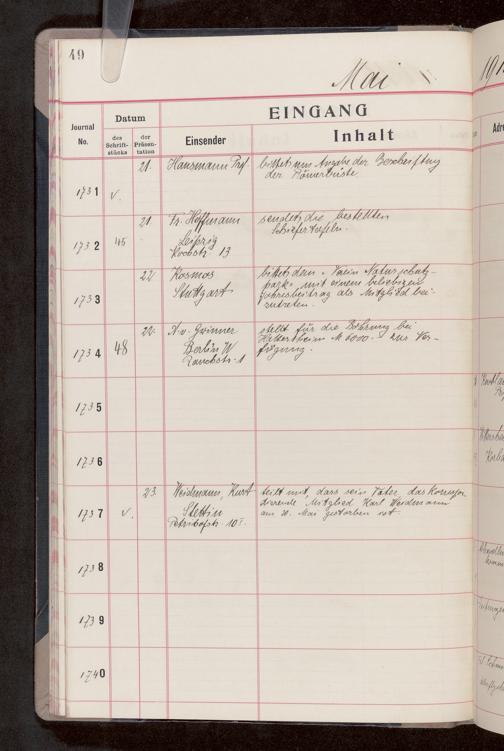 49
Mai
191
Journal No.
Datum
des Schriftstücks
der Präsentation
EINGANG
Einsender
Inhalt
Adre
1731
v.
21.
Hausmann Prof.
bittet um Angabe der Beschriftung
der Römerbüste
1732
45
21
Fr. Hoffmann
Leipzig
Kochstr. 13
sendet die bestellten
Schiefertafeln.
1733
22
Kosmos
Stuttgart
bittet dem "Verein Naturschutz-
park" mit einem beliebigen
Jahresbeitrag als Mitglied bei-
zutreten.
1734
48
22.
A. v. Gwinner
Berlin W
Rauchstr. 1
stellt für die Bohrung bei
M 6000.- zur Ver-
fügung.
1735
1736
1737
v.
23.
Weidmann, Kurt
Stettin
10 I.
teilt mit, dass sein Vater, das korrespon
dierende Mitglied Karl Weidmann
am 20. Mai gestorben ist
1738
1739
1740